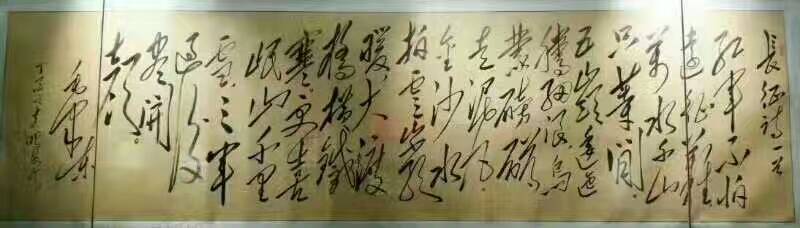 長征詩一首
紅軍不怕
遠征難
萬水千山
只等閒
五嶺逶迤
騰細浪烏
蒙磅礴
走泥丸
金沙水
拍雲崖
暖大渡
橋橫鐵
索寒更喜
岷山千里
雪三軍
過後
盡開
顏
毛澤東